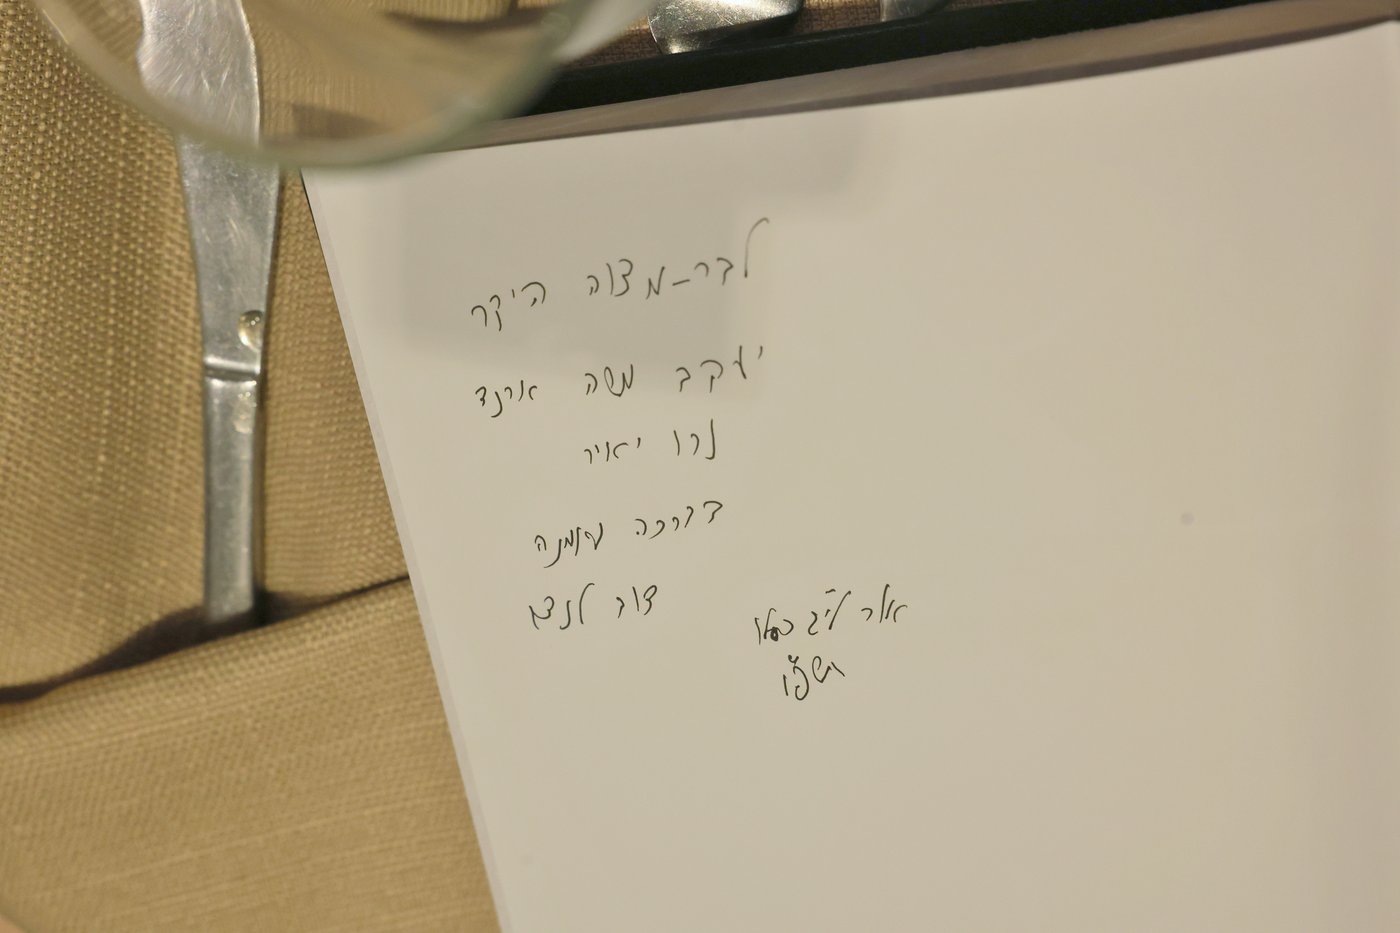 לבר-מצוה היקר
יעקב משה ארנד
נרו יאיר
בברכה נאמנה
דוב לנדא
אור לי"ג כסלו
תשפ"ו